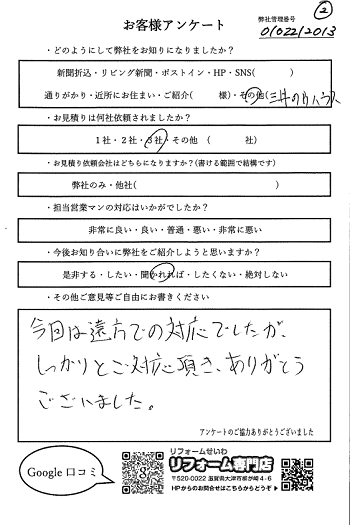 ②
お客様アンケート
弊社管理番号
0102212013
・どのようにして弊社をお知りになりましたか?
新聞折込・リビング新聞・ポストイン・HP・SNS( )
通りがかり・近所にお住まい・ご紹介( 様)・その他(三井のリハウス
・お見積りは何社依頼されましたか?
1社・2社・3社・その他 ( 社)
・お見積り依頼会社はどちらになりますか?(書ける範囲で結構です)
弊社のみ・他社( )
・担当営業マンの対応はいかがでしたか?
非常に良い・良い・普通・悪い・非常に悪い
・今後お知り合いに弊社をご紹介しようと思いますか?
是非する・したい・聞かれれば・したくない・絶対しない
・その他ご意見等ご自由にお書きください
今回は遠方での対応でしたが、
しっかりとご対応頂き、ありがとう
ございました。
アンケートのご協力ありがとうございました
Google 口コミ
g
リフォームせいわ
リフォーム専門店
〒520-0022 滋賀県大津市柳が崎4-6
HPからのお問合せはこちらからどうぞ▶